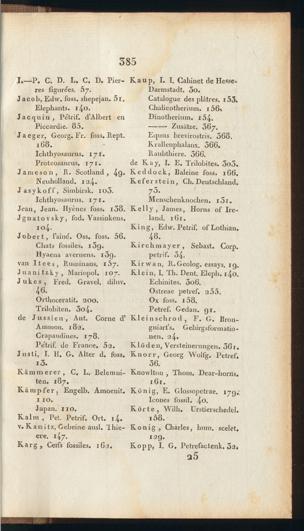 385
I.—P. C. D. L. C. D. Pier-
res figurées. 57.
Jacob, Edw. foss. shepejan. 51.
Elephants. 140.
Jacquin, Pétrif. d'Albert en
Piccardie. 85.
Jaeger, Georg. Fr. foss. Rept.
168.
Ichthyosaurus. 171.
Proteosaurus. 171.
Jameson, R. Scotland, 49.
Neuholland. 124.
Jasykoff, Simbirsk. 103.
Ichthyosaurus. 171.
Jean, Jean. Hyènes foss. 138.
Jgnatovsky, fod. Vassinkens.
104.
Jobert, l'aîné. Oss. foss. 56.
Chats fossiles. 139.
Hyaena avernens. 139.
van Itees, Ruminans. 157.
Juanitsky, Mariopol. 107.
Jukes, Fred. Gravel, diluv.
46.
Orthoceratit. 200.
Trilobiten. 304.
de Jussien, Ant. Corne d'
Ammon. 182.
Crapaudines. 178.
Pétrif. de France. 52.
Justi, I. H. G. Alter d. foss.
13.
Kämmerer, C. L. Belemni-
ten. 187.
Kämpfer, Engelb. Amoenit.
110.
Japan. 110.
Kalm, Pet. Petrif. Ort. 14.
v. Kanitz, Gebeine ausl. Thie-
ere. 147.
Karg, Cerfs fossiles. 162.
Kaup, I. I. Cabinet de Hesse-
Darmstadt. 30.
Catalogue des plâtres. 153.
Chalicotherium. 156.
Dinotherium. 154.
—— Zusätze. 367.
Equus brevirostris. 368.
Krallenphalanx. 366.
Raubthiere. 366.
de Kay, I. E. Trilobites. 303.
Keddock, Baleine foss. 166.
Keferstein, Ch. Deutschland,
73.
Menschenknochen. 131.
Kelly, James, Horns of Ire-
land. 161.
King, Edw. Petrif. of Lothian,
48.
Kirchmayer, Sebast. Corp.
petrif. 34.
Kirwan, R. Geolog. essays, 19.
Klein, I. Th. Dent. Eleph. 140.
Echinites. 306.
Ostreae petref. 255.
Ox foss. 158.
Petref. Gedan. 91.
Kleinschrod, F. G. Bron-
gniart's. Gebirgsformatio-
nen. 24.
Klöden, Versteinerungen. 361.
Knorr, Georg Wolfg. Petref.
36.
Knowlton, Thom. Dear-horns.
161.
König, E. Glossopetrae. 179.
Icones fossil. 40.
Körte, Wilh. Urstierschedel.
158.
Konig, Charles, hum. scelet.
129.
Kopp, I. G. Petrefactenk. 32.
25